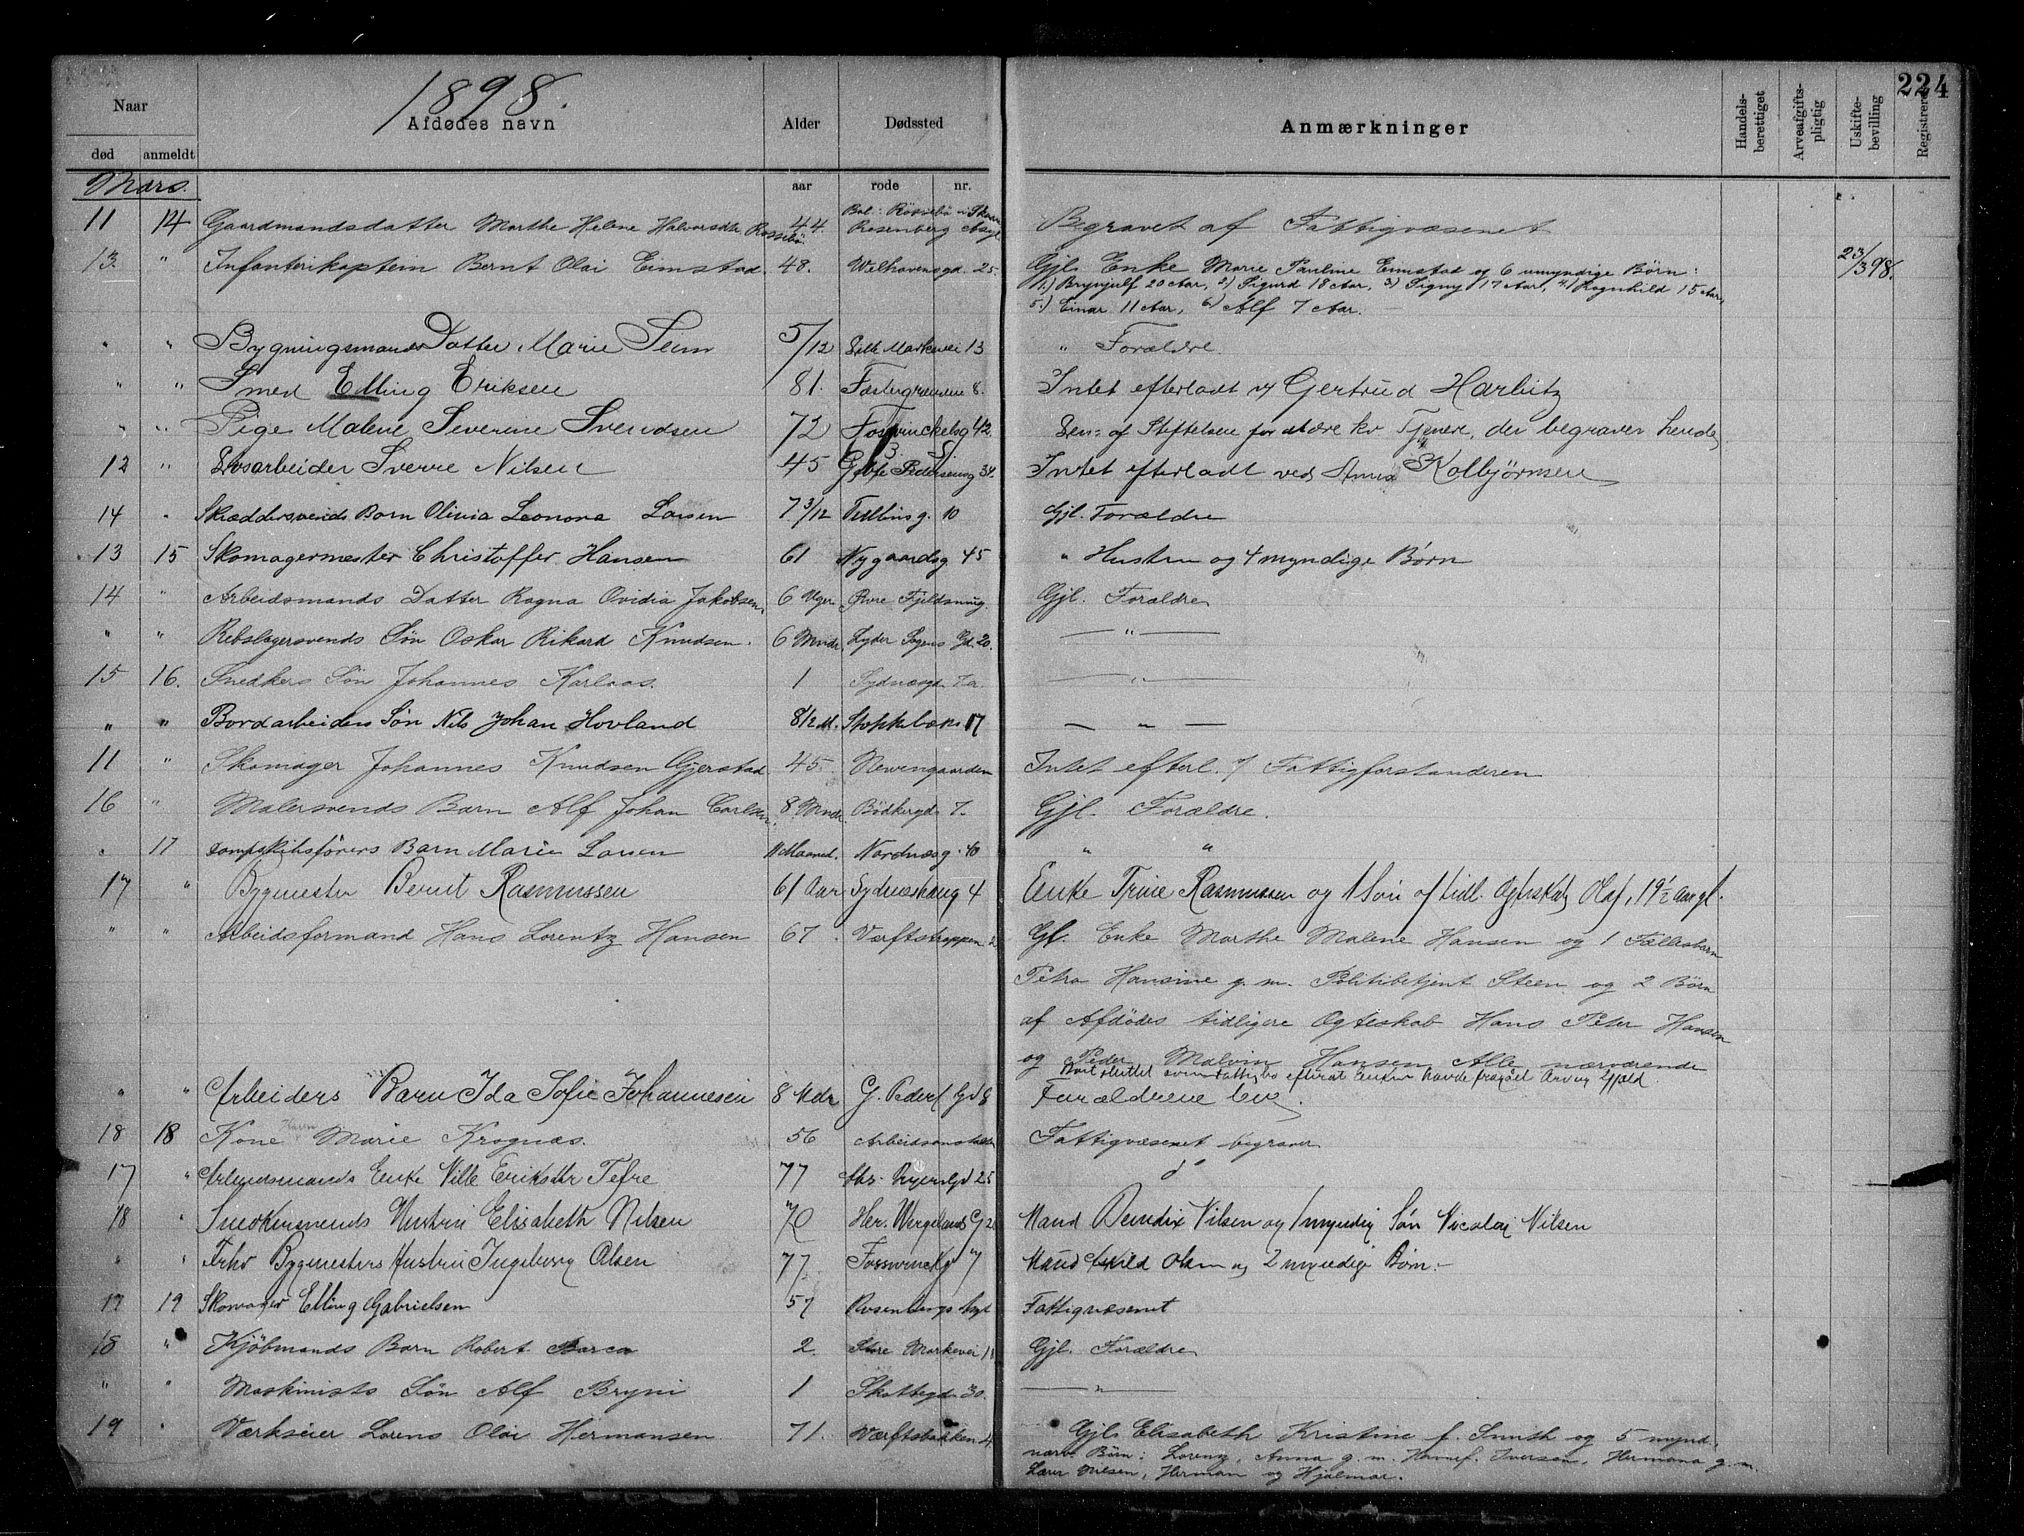 224
1898.
Naar
Afdødes navn
Alder
Dødssted
Anmærkninger
Handels-berettiget
Arveafgifts-pligtig
Uskifte-bevilling
Registreret
død anmeldt
aar rode nr.
Mars.
11 14 Gaardmandsdatter Marthe Helene Halvorsdtr Røssebø 44. Rosenberg Asyl Begravet af Fattigvæsenet
13 " Infanterikaptein Bernt Olai Eimstad 48. Welhavensgd. 25 Gjl. Enke Marie Pauline Eimstad og 6 umyndige Børn: 23/3 98.
1.) Brynjulf 20 Aar, 2) Sigurd 18 Aar, 3) Signy 17 Aar, 4) Ragnhild 15 Aar
5.) Einar 11 Aar, 6) Alf 7 Aar.
" " Bygningsmands Datter Marie Seim 5/12 Lille Markevei 13 " Forældre.
" " Smed Elling Eriksen 81. 8. Intet efterladt v/ Gertrud Harbitz
" " Pige Malene Severine Svendsen 72 Foswinckelsg 42 Len: af Stiftelsen for ældre kv Tjenere, der begraver hende
12 " Løsarbeider Sverre Nilsen 45 34. Intet efterladt ved Anna Kolbjørnsen
14 " Skræddersvends Barn Olivia Leonora Larsen 7 3/12 Tullinsg. 10 Gjl. Forældre
13 15 Skomagermester Christoffer Hansen 61 Nygaardsg 45 " Hustru og 4 myndige Børn
14 " Arbeidsmands Datter Ragna Ovidia Jakobsen 6 Uger Øvre Fjeldsmug. Gjl. Forældre
" " Rebslagersvends Søn Oskar Rikard Knudsen. 6 Mndr. Lyder Sagens Gd. 20. — " —
15 16. Snedkers Søn Johannes Karlaas. 1 Sydnæsgd. 7a — " —
" " Bordarbeiders Søn Nils Johan Hovland 8 1/2 M. 17 — " —
11 " Skomager Johannes Knudsen Gjerstad 45 Newengaarden Intet efterl. v/ Fattigforstanderen
16 " Malersvends Barn Alf Johan Carlsen 8 Mndr. Bødkergd. 7. Gjl. Forældre.
" 17 Dampskibsførers Barn Marie Larsen 11 Maaned. Nordnæsg. 40 " "
17 " Bygmester Bernt Rasmussen 61 Aar Sydneshaug 4 Enke Trine Rasmussen og 1 Søn af tidl. Ægteskab, Olaf, 19 1/2 Aar gl.
" " Arbeidsformand Hans Lorentz Hansen 67. Værftstrappen 2 Gl. Enke Marthe Malene Hansen og 1 Fællesbarn
Petra Hansine g. m. Politibetjent Steen og 2 Børn
af Afdødes tidligere Ægteskab Hans Peter Hansen
og Peder Malvin Hansen. Alle nærværende
" " Arbeiders Barn Ida Sofie Johannesen 8 Mdr G. Peders Gd 8 Forældrene lev.
18 18 Kone Marie Krognæs. 56 Arbeidsanstalten Fattigvæsenet begraver
17 " Arbeidsmands Enke Ville Eriksdtr Tefre 77 25 do
18 " Snedkersvends Hustru Elisabeth Nilsen 70 Hen. Wergelands G Mand Bendix Nilsen og 1 myndig Søn Nicolai Nilsen
" " Fhv Bygmesters Hustru Ingeborg Olsen 77. Fosswinckg 7 Mand Askild Olsen og 2 myndige Børn.-
17 19 Skomager Elling Gabrielsen 57 Rosenbergs Asyl Fattigvæsenet
18 " Kjøbmands Barn Robert Barca 2. Store Markevei Gjl. Forældre
" " Maskinists Søn Alf Bryni 1 Skottegd. 30. — " —
19 " Værkseier Lorens Olai Hermansen 71. Værftsbakken 4. Gjl. Elisabeth Kristine f. Smith og 5 mynd.
nærv. Børn: Lorenz, Anna g. m. Havnef. Iversen, Hermana g. m.
Lærer Nilsen, Herman og Hjalmar.